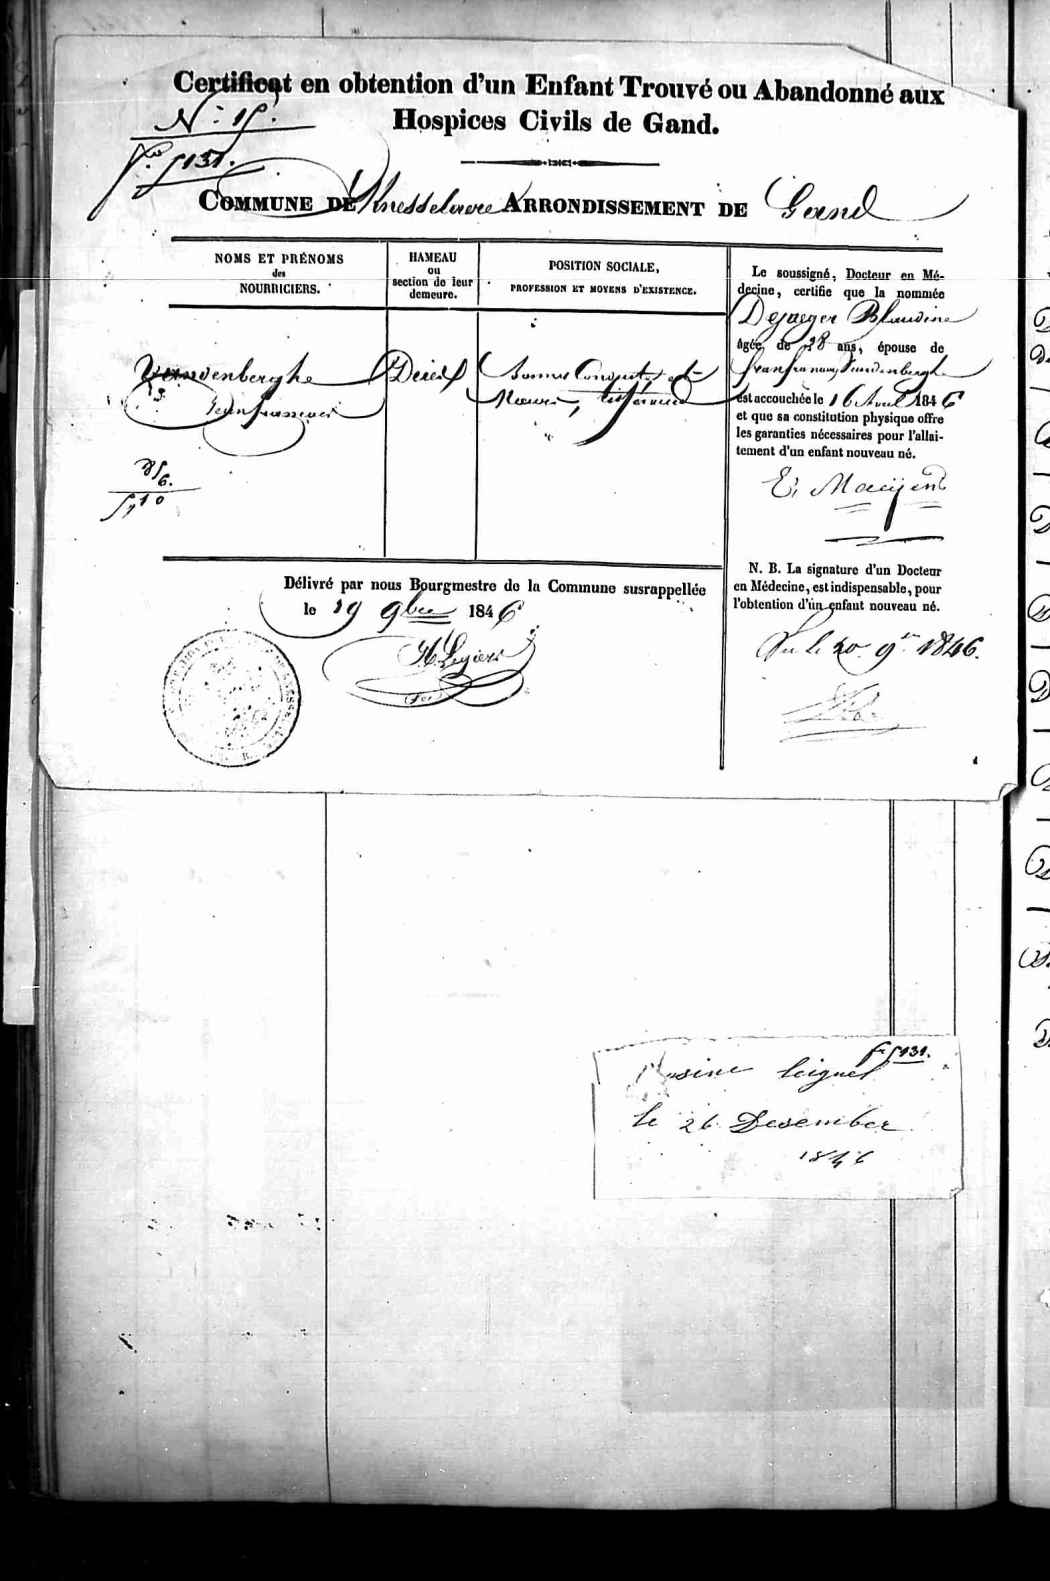 Certificat en obtention d'un Enfant Trouvé ou Abandonné aux
Hospices Civils de Gand.
N: 15.
fo 5131.
COMMUNE DE Knesselaere ARRONDISSEMENT DE Gand
NOMS ET PRÉNOMS
des
NOURRICIERS.
HAMEAU
ou
section de leur
demeure.
POSITION SOCIALE,
PROFESSION ET MOYENS D'EXISTENCE.
Vandenberghe
Jean francois
Bonne Conduite et
Moeurs, tisserand
Le soussigné, Docteur en Mé-
decine, certifie que la nommée
Dejaeger Blandine
âgée de 28 ans, épouse de
jean francois Vandenberghe
est accouchée le 16 Avril 1846
et que sa constitution physique offre
les garanties nécessaires pour l'allai-
tement d'un enfant nouveau né.
N. B. La signature d'un Docteur
en Médecine, est indispensable, pour
l'obtention d'un enfant nouveau né.
Vu le 20 9bre 1846.
Délivré par nous Bourgmestre de la Commune susrappellée
le 19 9bre 1846
f° 5131.
le 26 Desember
1846